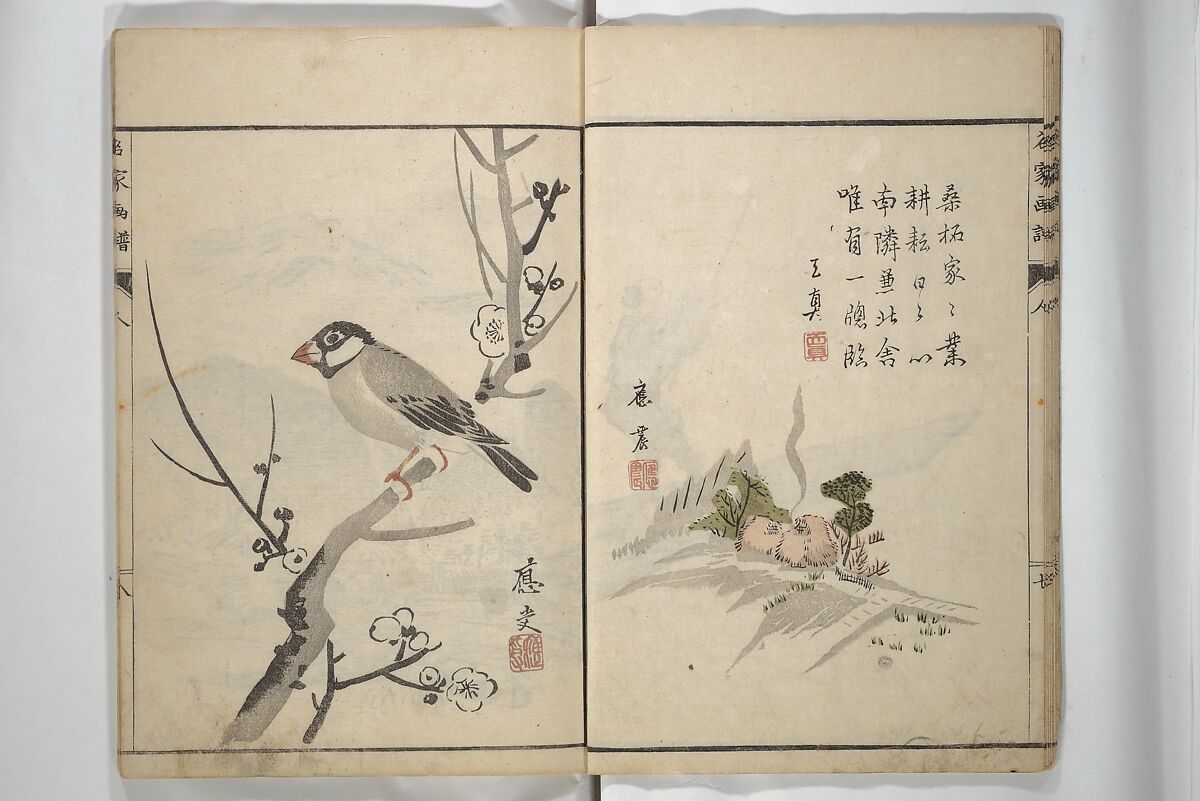 名家画譜
人
七
桑柘家〻業
耕耘日〻心
南隣兼北舎
唯有一牕臨
應震
應受
名家画譜
人
八